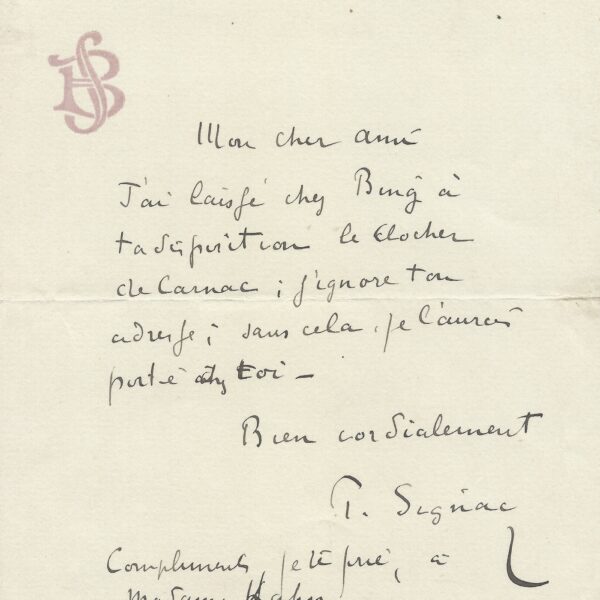 Mon cher ami
J'ai laissé chez Bing à
ta disposition le Clocher
de Carnac ; j'ignore ton
adresse ; sans cela, je l'aurais
porté chez toi —
Bien cordialement
P. Signac
Compliments, je te prie, à
Madame Kahn